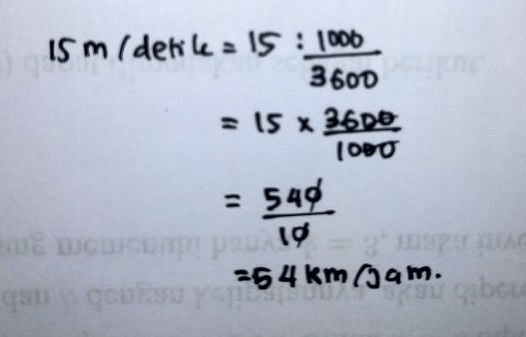 15 m/detik = 15 : 1000/3600
= 15 x 3600/1000
= 540/10
= 54 km/jam.